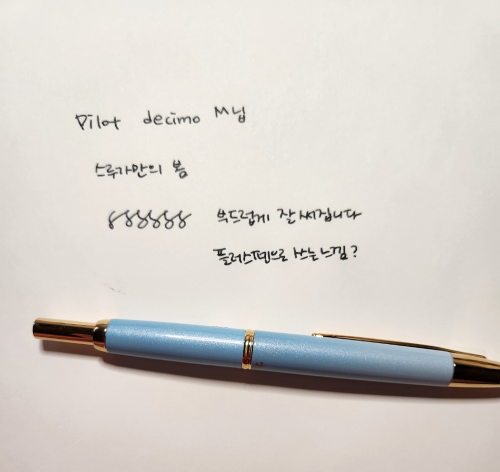 Pilot decimo M닙
스루가만의 봄
888888 부드럽게 잘 써집니다
플레스펜으로 쓰는 느낌?